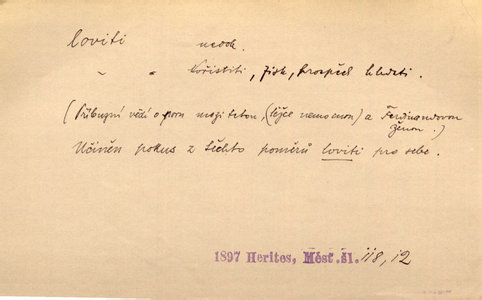 loviti nedok.
„ „ kořistiti, zisk, prospěch hledati.
(Příbuzní vědí o pom mezi tetou, (těžce nemocnou) a Ferdinandovou
ženou.)
Učiněn pokus z těchto poměrů loviti pro sebe.
1897 Herites, Měsť. šl. 118, 12